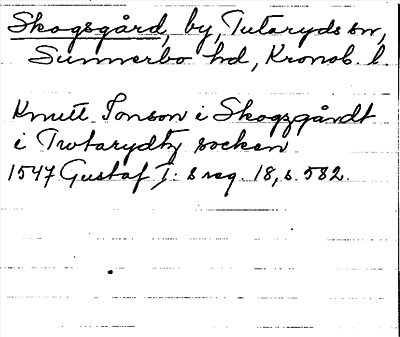 Skogsgård, by, Tutaryds sn,
Sunnerbo hd, Kronob. l
Knutt Jonson i Skogzgårdt
i Twtarydtz socken
1547 Gustaf I: s reg. 18, s. 582.